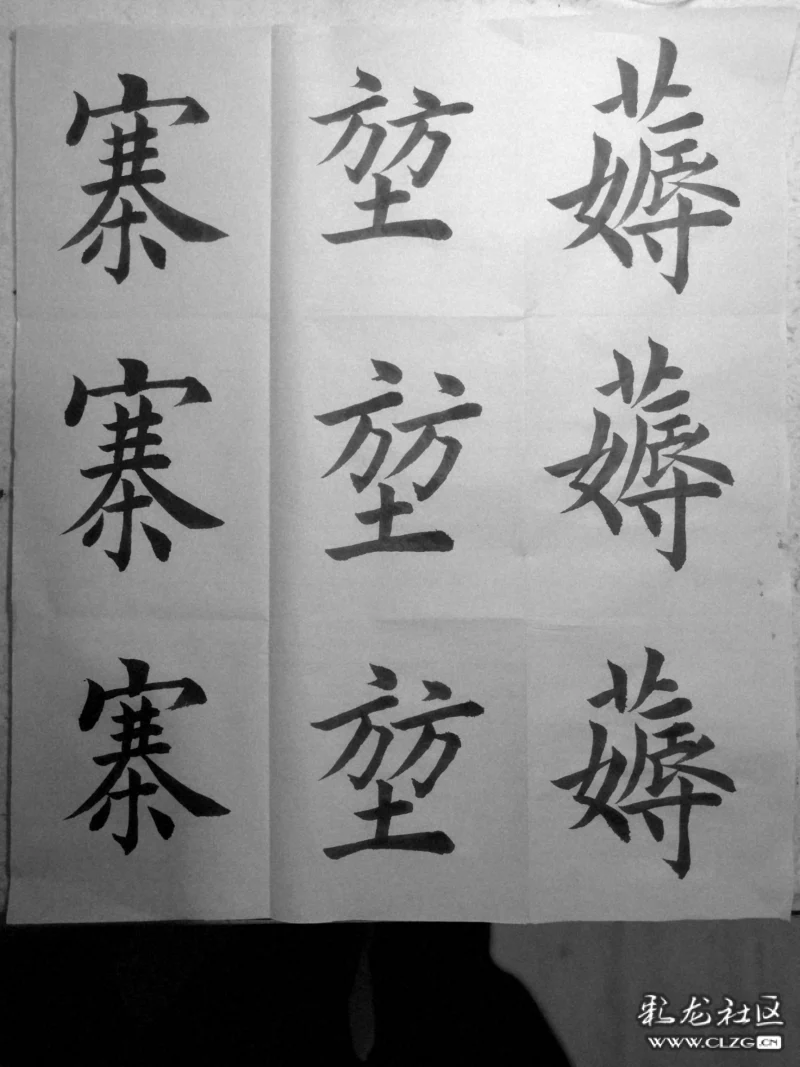 薅薅薅
堃堃堃
寨寨寨
彩龙社区
WWW.CLZG.CN